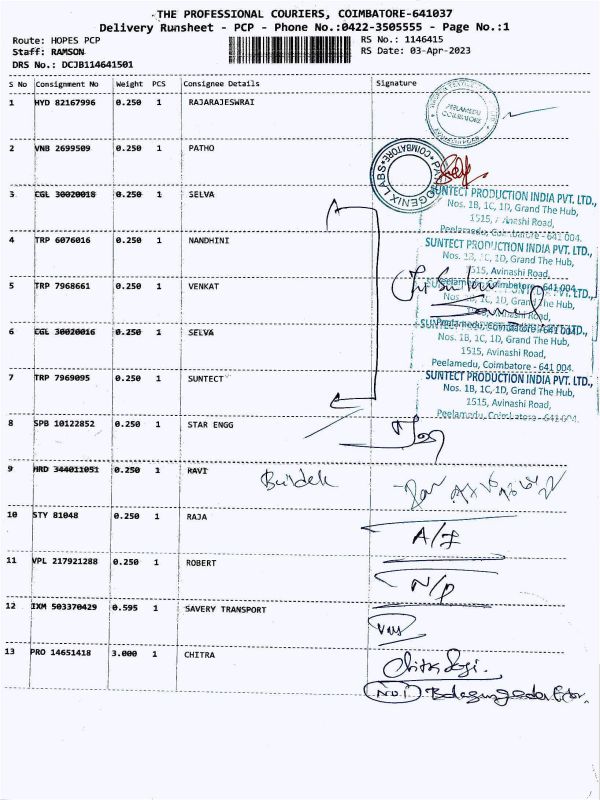 THE PROFESSIONAL COURIERS, COIMBATORE-641037
Delivery Runsheet - PCP - Phone No.:0422-3505555 - Page No.:1
Route: HOPES PCP RS No.: 1146415
Staff: RAMSON RS Date: 03-Apr-2023
DRS No.: DCJB114641501
S No Consignment No Weight PCS Consignee Details Signature
1 HYD 82167996 0.250 1 RAJARAJESWRAI
PEELAMEDU
COIMBATORE
2 VNB 2699509 0.250 1 PATHO
COIMBATORE
OGENIX LABS
3 CGL 30020018 0.250 1 SELVA
SUNTECT PRODUCTION INDIA PVT. LTD.,
Nos. 1B, 1C, 1D, Grand The Hub,
1515, Avinashi Road,
Peelamedu, Coimbatore - 641 004.
4 TRP 6076016 0.250 1 NANDHINI
SUNTECT PRODUCTION INDIA PVT. LTD.,
Nos. 1B, 1C, 1D, Grand The Hub,
1515, Avinashi Road,
Peelamedu, Coimbatore - 641 004.
5 TRP 7968661 0.250 1 VENKAT
6 CGL 30020016 0.250 1 SELVA
SUNTECT PRODUCTION INDIA PVT. LTD.,
Nos. 1B, 1C, 1D, Grand The Hub,
1515, Avinashi Road,
Peelamedu, Coimbatore - 641 004.
7 TRP 7969095 0.250 1 SUNTECT
SUNTECT PRODUCTION INDIA PVT. LTD.,
Nos. 1B, 1C, 1D, Grand The Hub,
1515, Avinashi Road,
Peelamedu, Coimbatore - 641 004.
8 SPB 10122852 0.250 1 STAR ENGG
9 HRD 344011051 0.250 1 RAVI
10 STY 81048 0.250 1 RAJA
11 VPL 217921288 0.250 1 ROBERT
N/P
12 IXM 503370429 0.595 1 SAVERY TRANSPORT
13 PRO 14651418 3.000 1 CHITRA
No.1